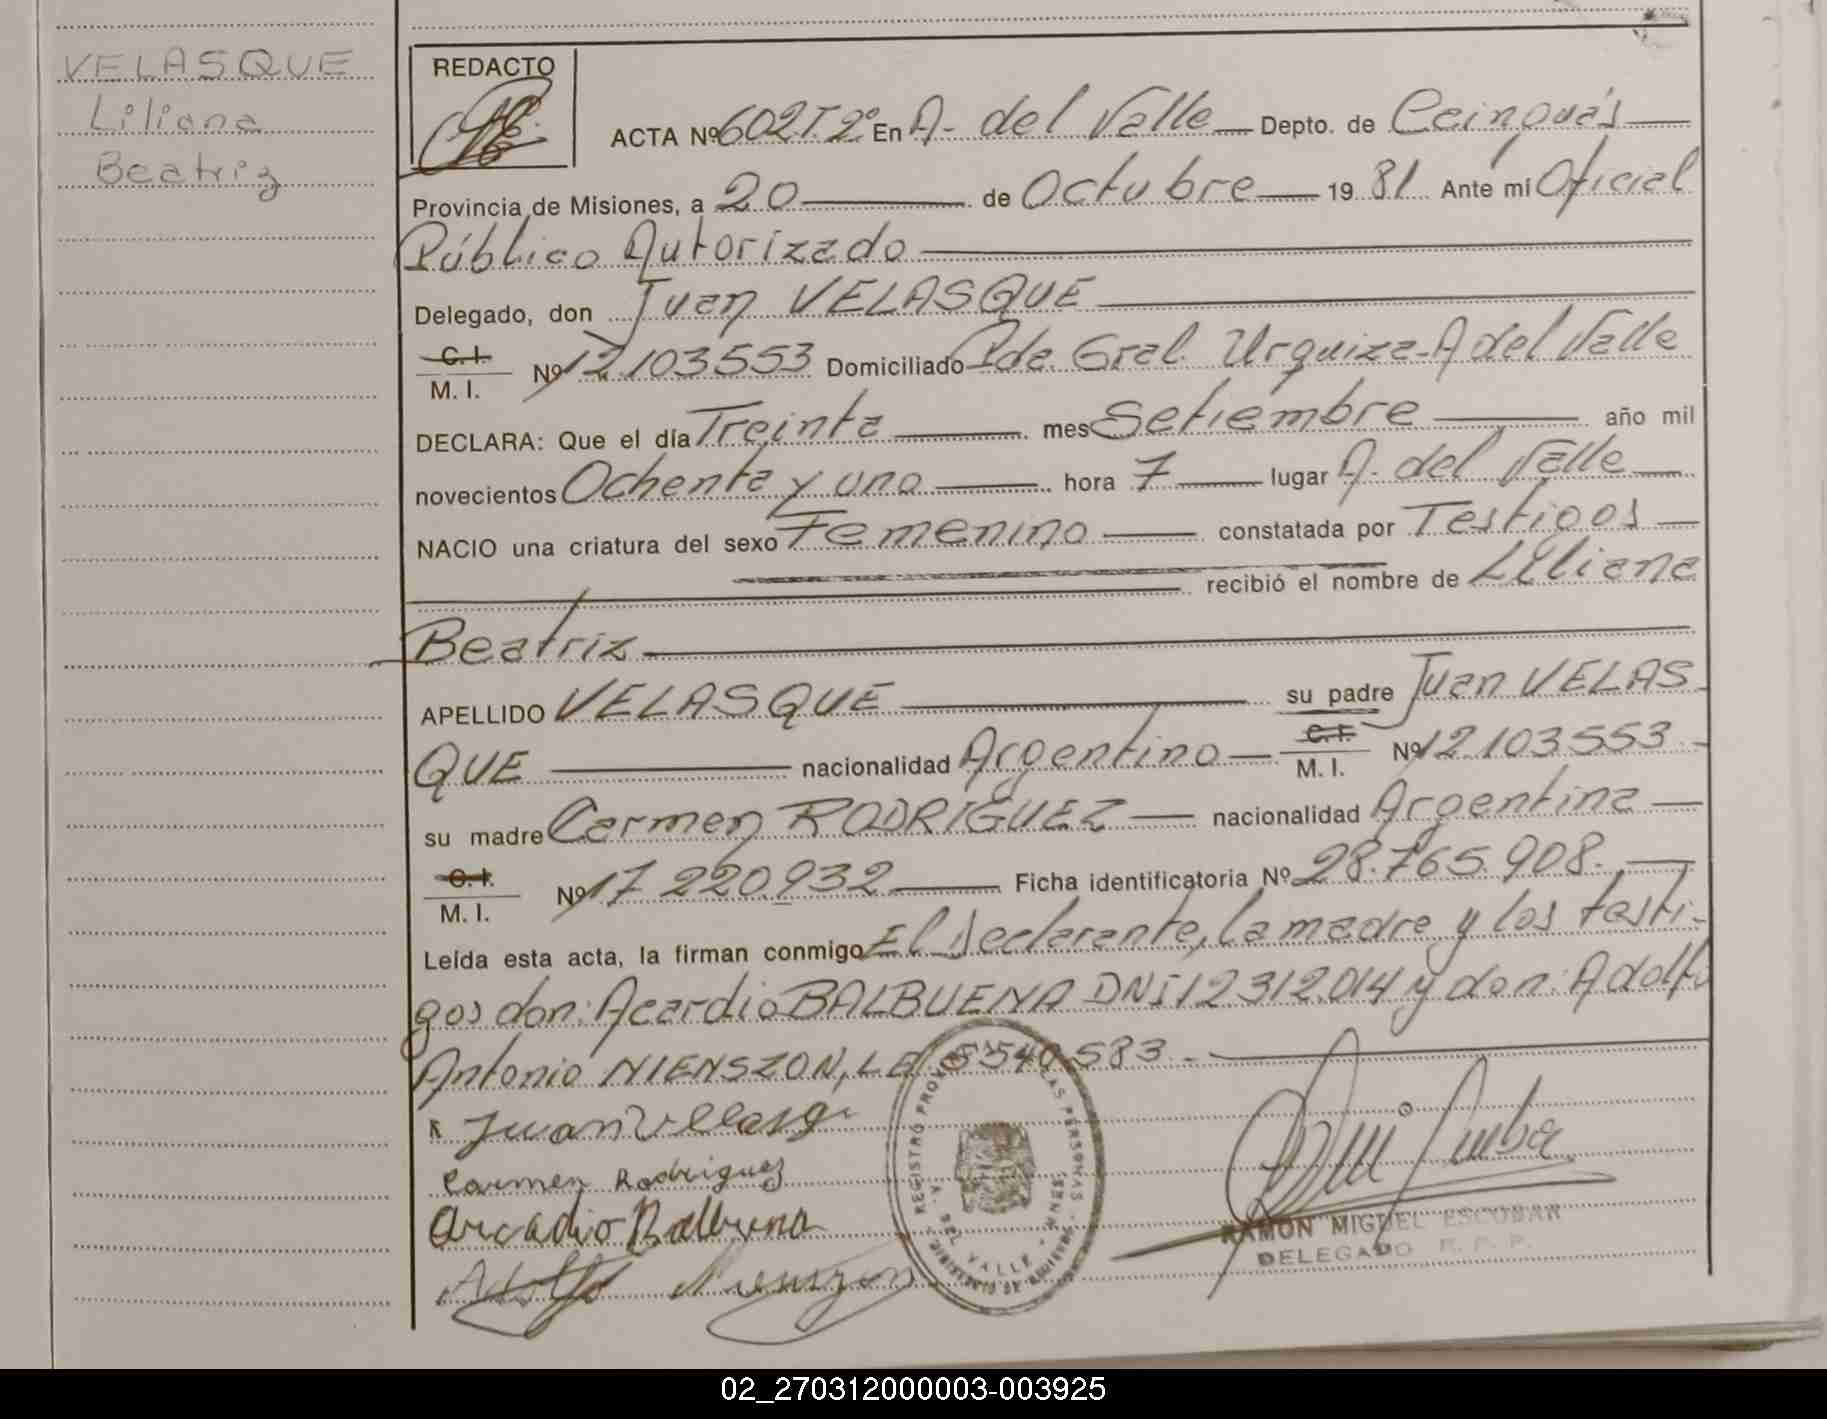 VELASQUE
Liliana
Beatriz
REDACTO
ACTA Nº 602 T. 2º En A. del Valle Depto. de Cainguás
Provincia de Misiones, a 20 de Octubre 19 81 Ante mí Oficial
Público Autorizado
Delegado, don Juan VELASQUE
C. I.
M. I. Nº 12.103553 Domiciliado Pda. Gral. Urquiza - A del Valle
DECLARA: Que el día Treinta mes Setiembre año mil
novecientos Ochenta y uno hora 7 lugar A. del Valle
NACIO una criatura del sexo Femenino constatada por Testigos
recibió el nombre de Liliana
Beatriz
APELLIDO VELASQUE su padre Juan VELAS
QUE nacionalidad Argentino C. I. M. I. Nº 12.103553.
su madre Carmen RODRIGUEZ nacionalidad Argentina
C. I.
M. I. Nº 17 220.932 Ficha identificatoria Nº 28.765.908.
Leída esta acta, la firman conmigo El declarante, la madre y los testi-
gos don: Acardio BALBUENA DNI 12312.014 y don: Adolfo
Antonio NIENSZON, LE 8540.583.-
Juan Vellasq
Carmen Rodriguez
Arcadio Balbuena
Adolfo Nienszon
REGISTRO PROV LAS PERSONAS
A. DEL VALLE - MNES.
MINISTERIO DE
RAMON MIGUEL ESCOBAR
DELEGADO R. P. P.
02_270312000003-003925